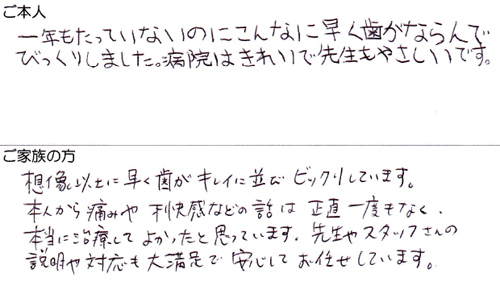 ご本人
一年もたっていないのにこんなに早く歯がならんで
びっくりしました。病院はきれいで先生もやさしいです。
ご家族の方
想像以上に早く歯がキレイに並びビックリしています。
本人から痛みや不快感などの話は正直一度もなく、
本当に治療してよかったと思っています。先生やスタッフさんの
説明や対応も大満足で安心してお任せしています。